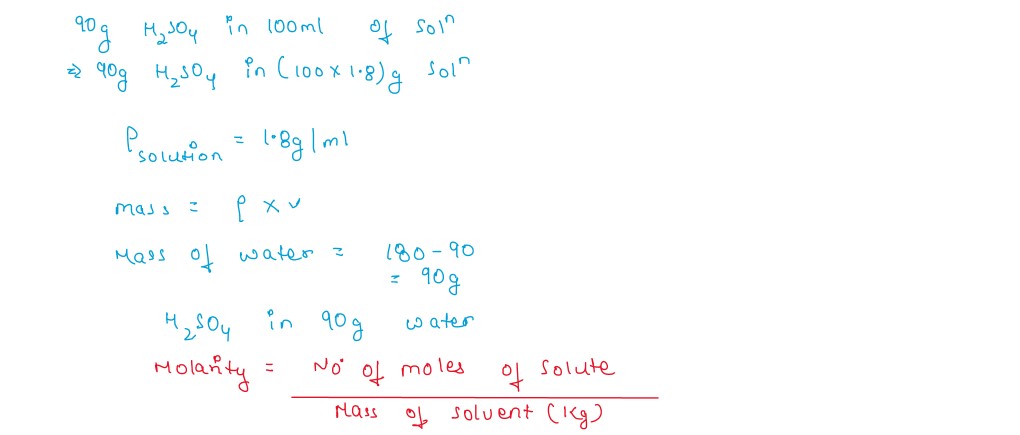 90g H₂SO₄ in 100ml of solⁿ
⇒ 90g H₂SO₄ in (100 × 1.8) g solⁿ
ρ solution = 1.8g/ml
mass = ρ × v
Mass of water = 180 - 90
= 90g
H₂SO₄ in 90g water
Molarity = No of moles of solute
Mass of solvent (Kg)